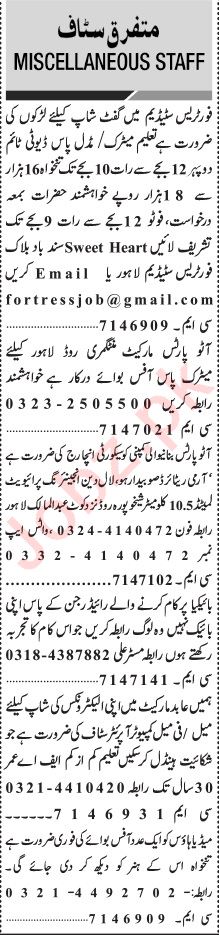 متفرق سٹاف
MISCELLANEOUS STAFF
فورٹریس سٹیڈیم میں گفٹ شاپ کیلئے لڑکوں کی
ضرورت ہے تعلیم میٹرک/ مڈل پاس ڈیوٹی ٹائم
دوپہر 12بجے سے رات 10بجے تک تنخواہ 16ہزار
سے 18ہزار روپے خواہشمند حضرات بمعہ
درخواست، فوٹو 12بجے سے رات 9 بجے تک
تشریف لائیں Sweet Heart سند باد بلاک
فورٹریس سٹیڈیم لاہور یا Email کریں
fortressjob@gmail.com
سی ایم۔ 7146909
آٹو پارٹس مارکیٹ منٹگمری روڈ لاہور کیلئے
میٹرک پاس آفس بوائے درکار ہے خواہشمند
رابطہ کریں 0323-2505500
سی ایم۔ 7147021
آٹو پارٹس بنانیوالی کمپنی کو سیکورٹی انچارج کی ضرورت ہے
،آرمی ریٹائرڈ صوبیدار ہو، لال دین انجینئرنگ پرائیویٹ
لمیٹڈ 10.5 کلومیٹر شیخوپورہ روڈ نزد کوٹ عبدالمالک لاہور
رابطہ فون 4140472-0324، واٹس ایپ
نمبر 0332-4140472
سی ایم۔ 7147102
بائیکیا پر کام کرنے والے رائیڈر جن کے پاس اپنی
بائیک نہیں وہ لوگ رابطہ کریں جو اس کام کا تجربہ
رکھتے ہوں رابطہ مسٹر علی 0318-4387882
سی ایم۔ 7147141
ہمیں عابد مارکیٹ میں اپنی الیکٹرونکس کی شاپ کیلئے
میل / فی میل کمپیوٹر آپریٹر سٹاف کی ضرورت ہے جو
شکائیت ہینڈل کرسکیں تعلیم کم از کم ایف اے عمر
30 سال تک رابطہ 0321-4410420
سی ایم 7146931
میڈیا ہاؤس کو ایک عدد آفس بوائے کی فوری ضرورت ہے
تنخواہ اس کے ہنر کو دیکھ کر دی جائے گی۔
رابطہ:۔ 0321-4492702
سی ایم۔ 7146909